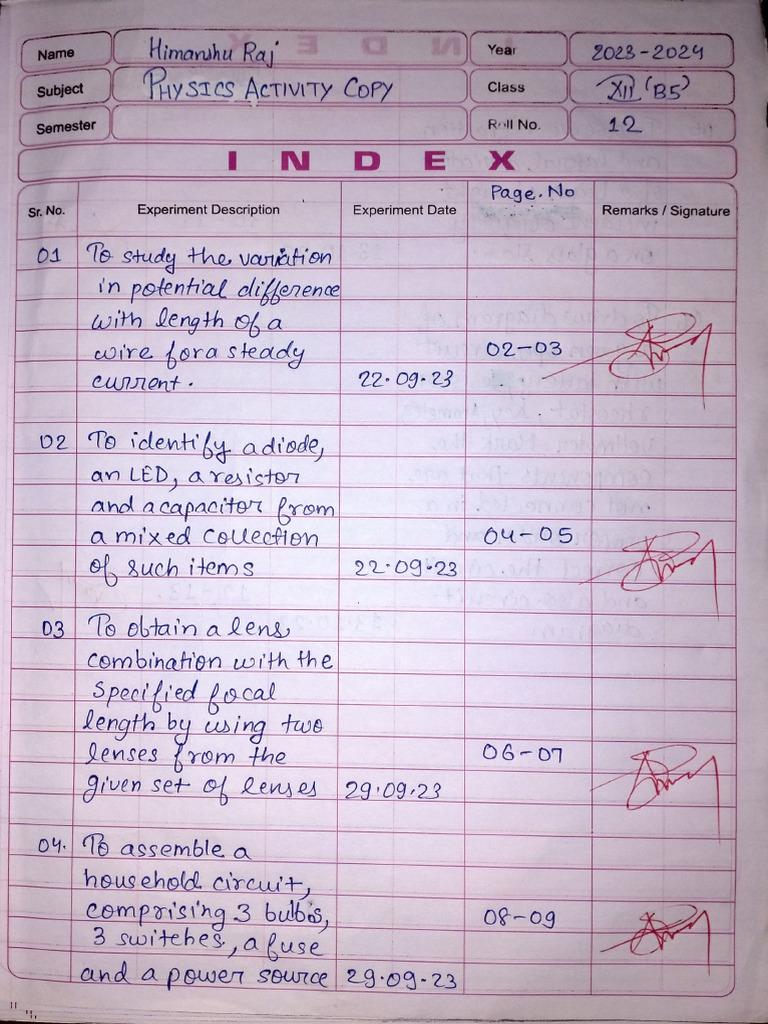 Name Himanshu Raj Year 2023-2024
Subject PHYSICS ACTIVITY COPY Class XII 'B5'
Semester Roll No. 12
INDEX
Page. No
Sr. No. Experiment Description Experiment Date Remarks / Signature
01 To study the variation
in potential difference
with length of a
wire for a steady 02-03
current. 22.09.23
02 To identify a diode,
an LED, a resistor
and a capacitor from
a mixed collection 04-05
of such items 22.09.23
03 To obtain a lens
combination with the
specified focal
length by using two
lenses from the 06-07
given set of lenses 29.09.23
04. To assemble a
household circuit,
comprising 3 bulbs, 08-09
3 switches, a fuse
and a power source 29.09.23